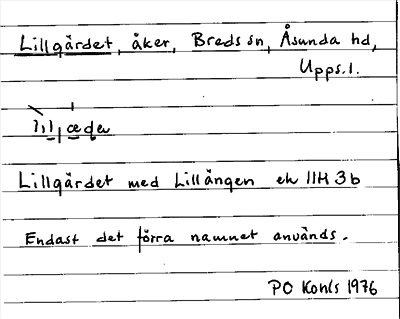 Lillgärdet, åker, Breds sn, Åsunda hd,
Upps.l.
Lillgärdet med Lillängen ek 11H 3b
Endast det förra namnet används.
PO Kohls 1976